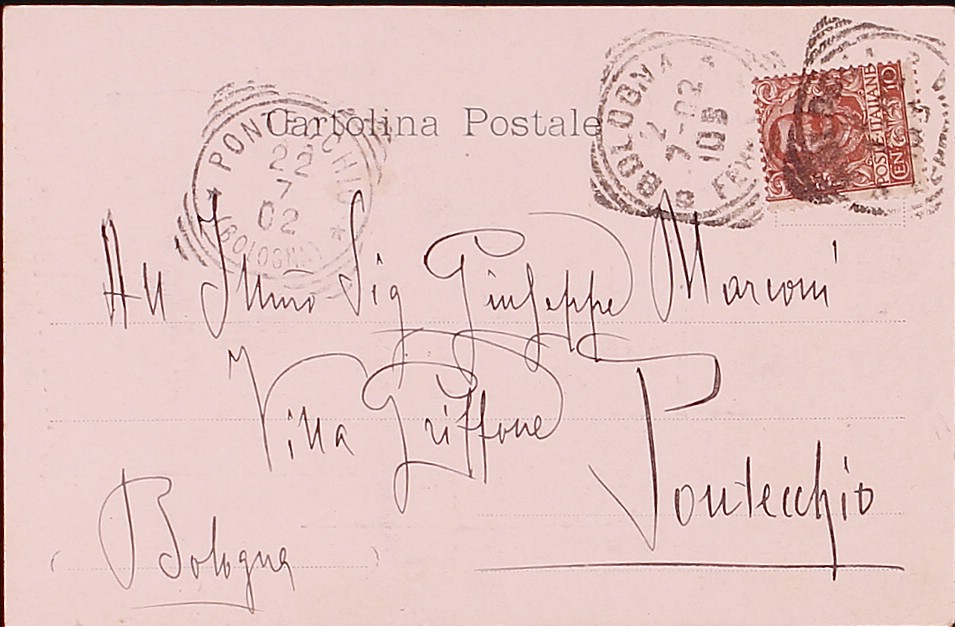 Cartolina Postale
PONTECCHIO
22
7
02
(BOLOGNA)
BOLOGNA
7-02
10 S
POSTE ITALIANE
CEN 10
All Illmo Sig Giuseppe Marconi
Villa Griffone
Pontecchio
(Bologna)